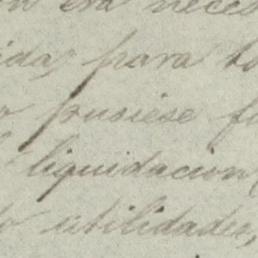 era neces
ida, para to
o pusiese fo
liquidacion
o utilidades,